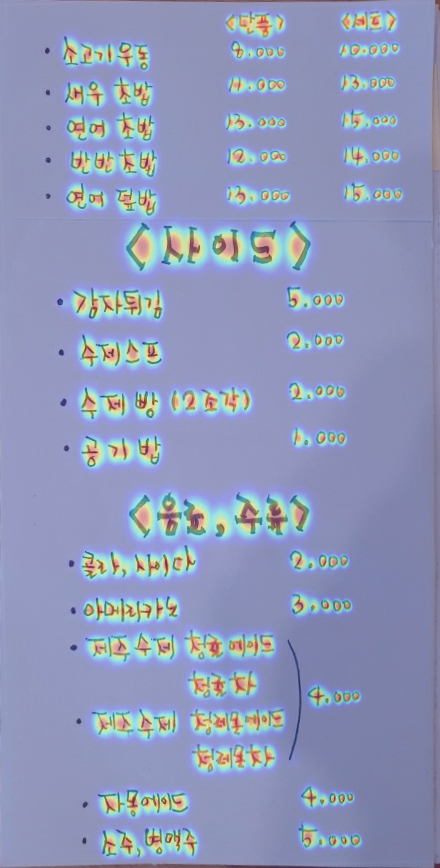 <단품> <세트>
• 소고기우동 8.000 10.000
• 새우 초밥 11.000 13.000
• 연어 초밥 13.000 15.000
• 반반초밥 12.000 14.000
• 연어 덮밥 13.000 15.000
<사이드>
• 감자튀김 5.000
• 수제스프 2.000
• 수제 빵 (2조각) 2.000
• 공기 밥 1.000
<음료, 주류>
• 콜라, 사이다 2.000
• 아메리카노 3.000
• 제주 수제 청귤 에이드
청귤 차
4.000
• 제주수제 청레몬에이드
청레몬차
• 자몽에이드 4.000
• 소주, 병맥주 5.000